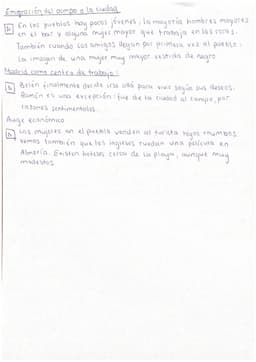 Emigración del campo a la ciudad
En los pueblos hay pocos jóvenes, la mayoría hombres mayores
en el bar y alguna mujer mayor que trabaja en las casas.
También cuando los amigos llegan por primera vez al pueblo:
la imagen de una mujer muy mayor vestida de negro
Madrid como centro de trabajo:
Belén finalmente decide irse allá para vivir según sus deseos.
Ramón es una excepción: fue de la ciudad al campo, por
razones sentimentales.
Auge económico
Las mujeres en el pueblo venden al turista tejas
vemos también que los ingleses ruedan una película en
Almería. Existen hoteles cerca de la playa, aunque muy
modestos